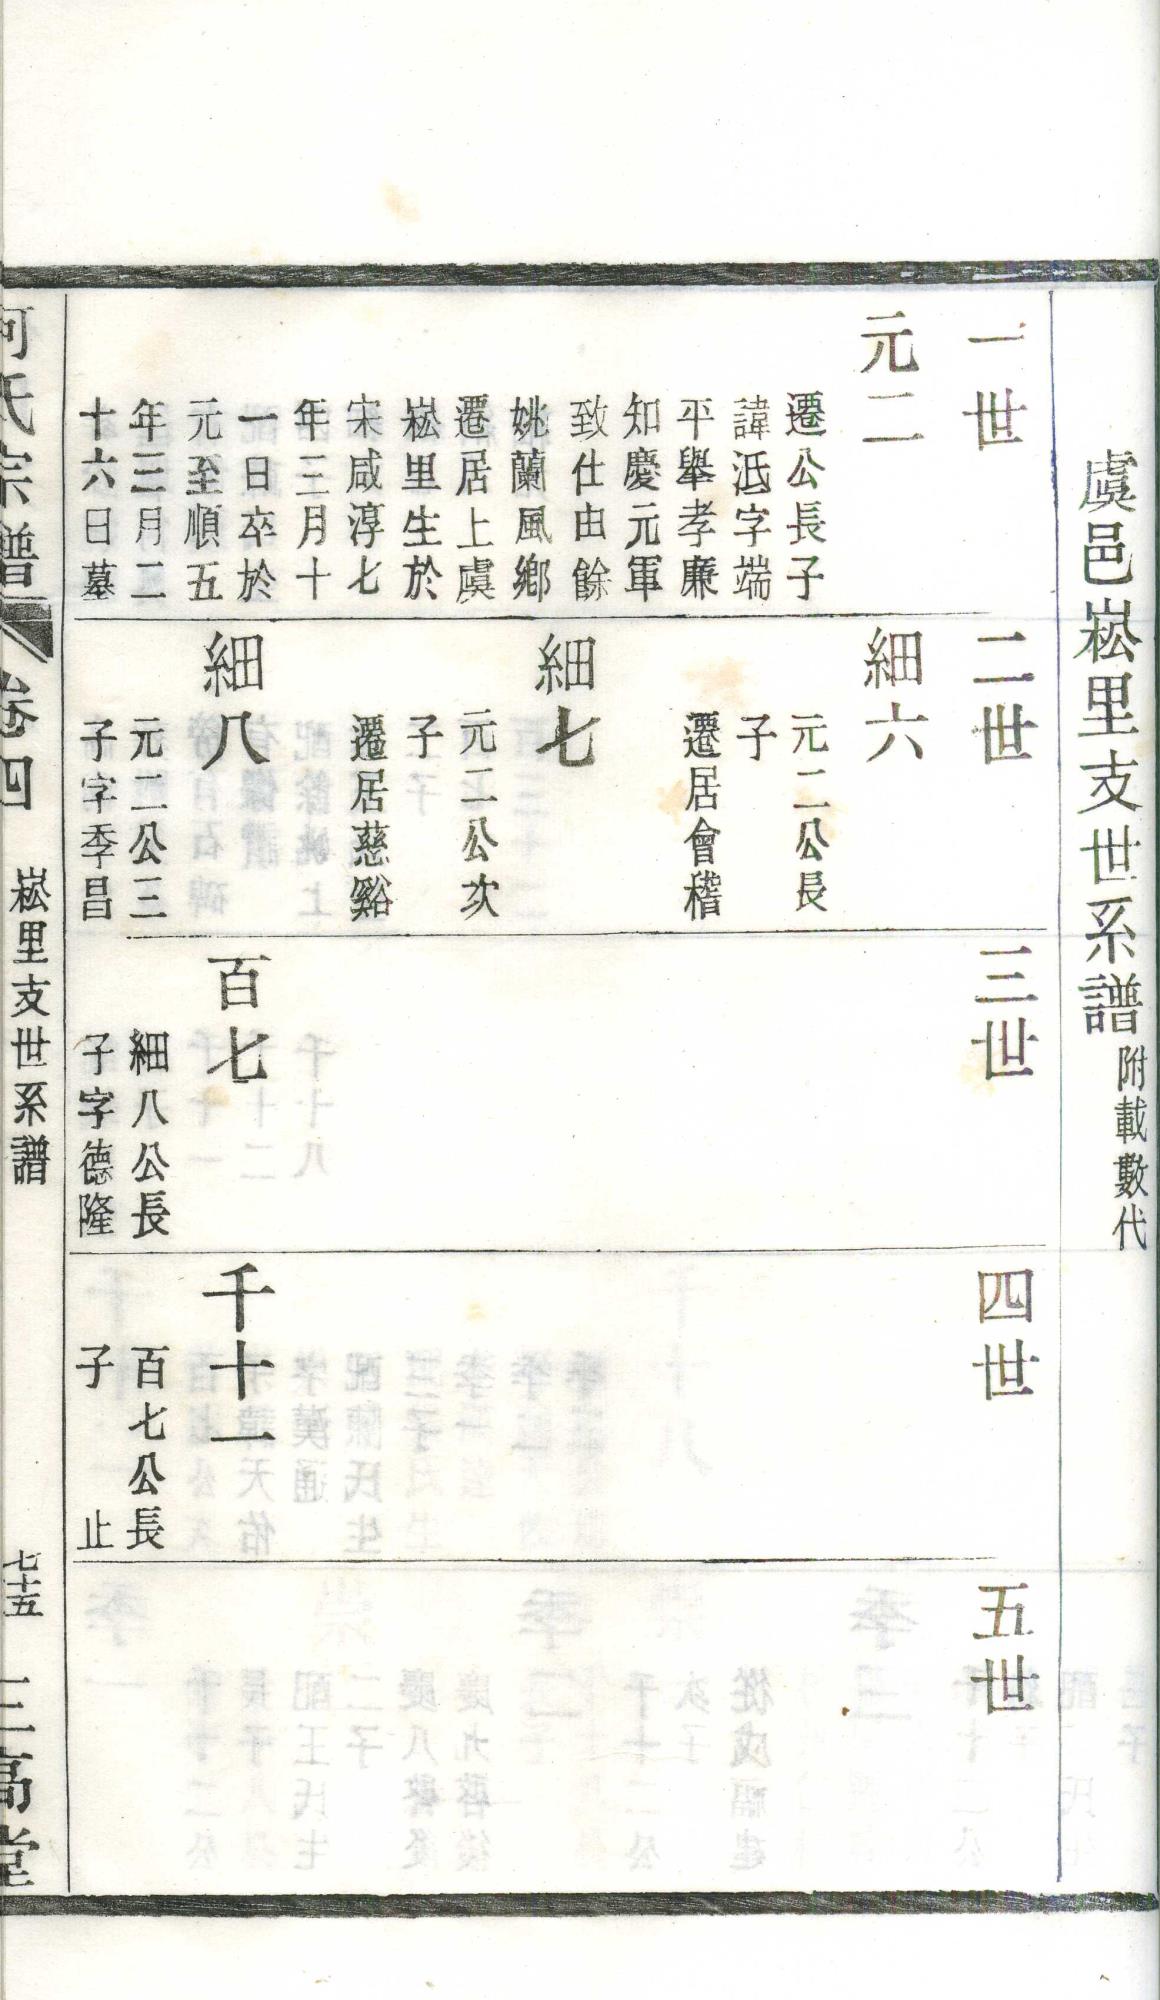 虞邑崧里支世系譜附載數代
一世
元二
遷公長子
諱泜字端
平舉孝廉
知慶元軍
致仕由餘
姚蘭風鄉
遷居上虞
崧里生於
宋咸淳七
年三月十
一日卒於
元至順五
年三月二
十六日墓
二世
細六
元二公長
子
遷居會稽
細七
元二公次
子
遷居慈谿
細八
元二公三
子字季昌
三世
百七
細八公長
子字德隆
四世
千十一
百七公長
子 止
五世
何氏宗譜 卷四 崧里支世系譜 七十五 三高堂